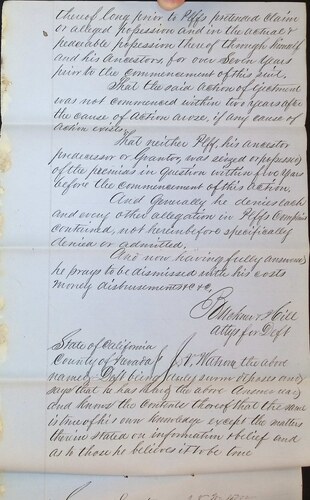 thereof long prior to Plffs pretended claim
or alleged possession and in the actual &
peaceable possession thereof through himself
and his Ancestors, for over Seven Years
prior to the commencement of this suit.
That the said Action of Ejectment
was not commenced within two years after
the cause of Action arose, if any cause of
Action exists.
That neither Plff, his ancestor
predecessor or Grantor, was seized or possessed
of the premises in Question within five Years
before the commencement of this Action.
And Generally he denies each
and every other allegation in Plffs Complaint
contained, not hereinbefore specifically
denied or admitted.
And now having fully answered
he prays to be dismissed with his costs
money disbursements &c &c.
& Hill
Attys for Deft
State of California
County of J. N.
the above
named Deft being duly sworn deposes and
says that he has heard the above Answer read
and knows the contents thereof that the same
is true of his own knowledge except the matters
therein stated on information & belief and
as to those he believes it to be true